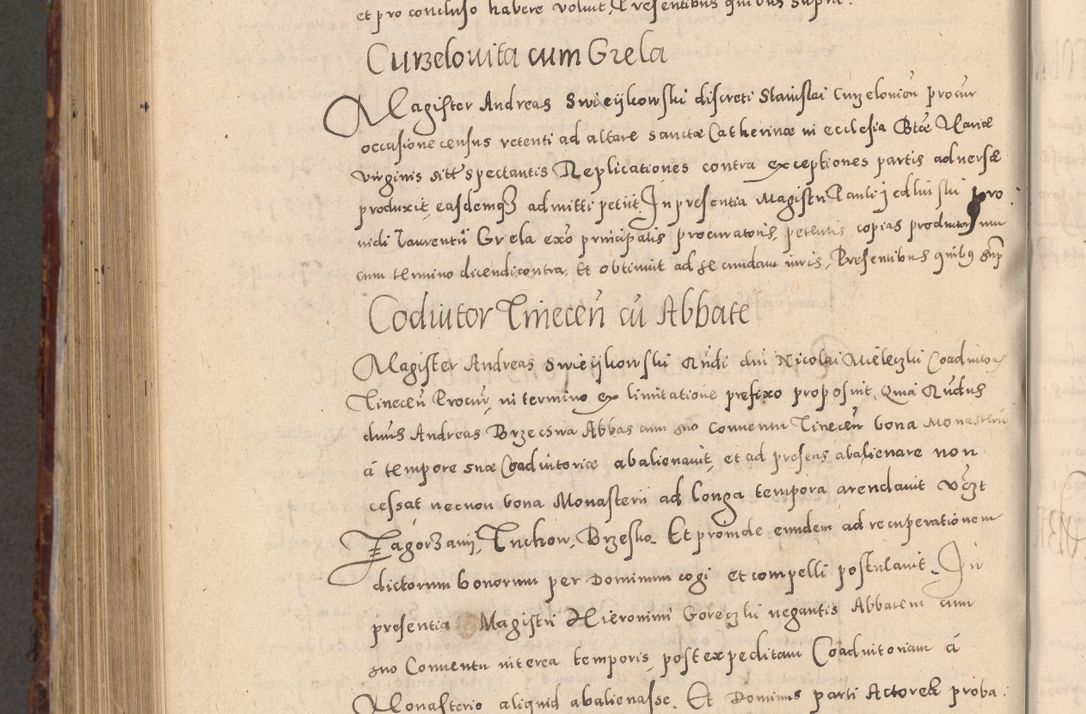 et pro concluso habere voluit, Presentibus quibus supra.
Curzelovita cum Grela
Magister Andreas Swieijkowski discreti Stanislai Curzelovien procur
occasione census retenti ad altare sanctæ Catherinæ in ecclesia Btæ Mariæ
virginis sitt spectantis Replicationes contra exceptiones partis adversæ
produxit, easdemq3 admitti petiit. In presentia Magistri Pauli pro
vidi Laurentii Grela exo principalis procuratoris, petentis copias productor
cum termino dicendi contra, Et obtinuit ad secundam iuris, Presentibus quibus sup
Codiutor Tinecen cū Abbate
Magister Andreas Swieijkowski Rndi dni Nicolai Mieleczki Coadiutor
Tinecen Procur, in termino ex limitatione prefixo proposuit, Quia Rndus
dnus Andreas Brzecswa Abbas cum suo Conventu Tinecen bona Monasterii
á tempore suæ Coadiutoriæ abalienavit, et ad presens abalienare non
cessat necnon bona Monasterii ad longa tempora arendavit vczt
Zagorzanij, Tuchow, Brzesko. Et proinde eundem ad recuperationem
dictorum bonorum per Dominum cogi et compelli postulavit. In
presentia Magistri Hieronimi Goreczki negantis Abbatem cum
suo Conventu interea temporis, post expeditam Coadiutoriam á
Monasterio aliquid abalienasse. Et Dominus parti Actoreæ proba: